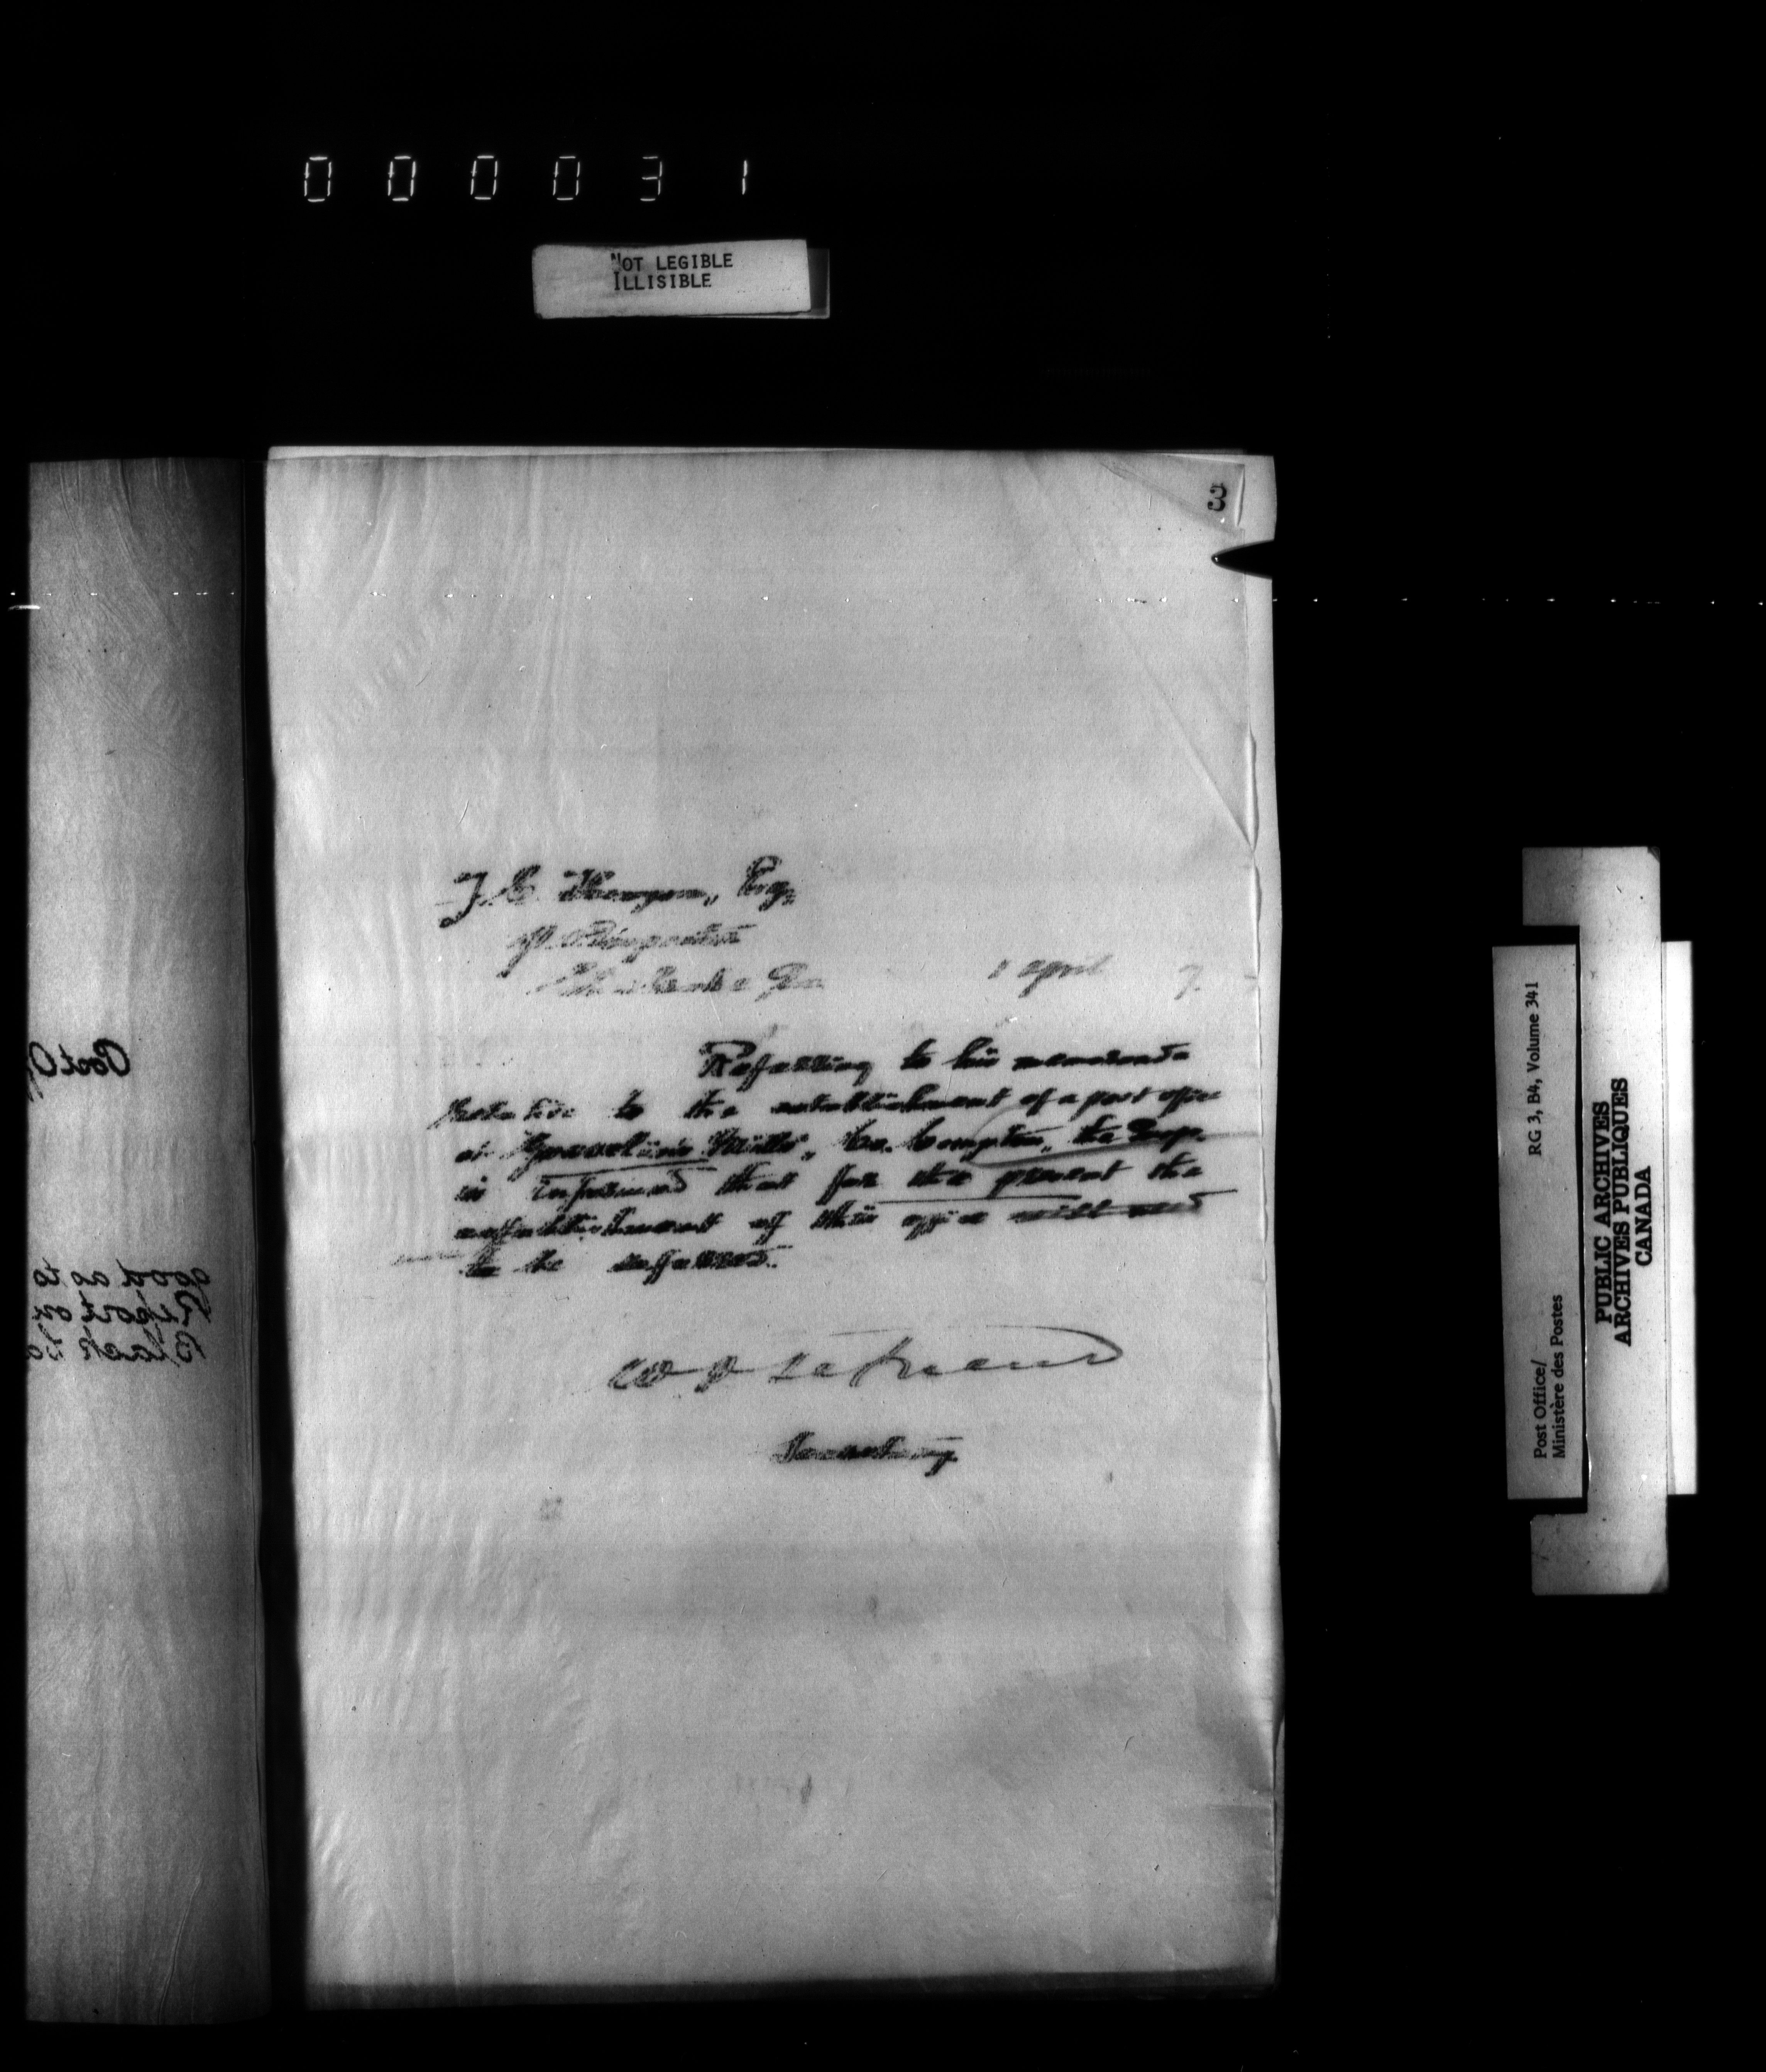 000031
NOT LEGIBLE
ILLISIBLE
3
J. C. Thompson, Esq,
P. O. Inspector
1 April 7.
Referring to his memoranda
relative to the establishment of a post office
at Mills, Co. Compton, the Insp.
is informed that for the present the
establishment of this office will need
to be deferred.
Secretary
Post O
good as to
Report on
Black
RG 3, B4, Volume 341
Post Office/
Ministère des Postes
PUBLIC ARCHIVES
ARCHIVES PUBLIQUES
CANADA